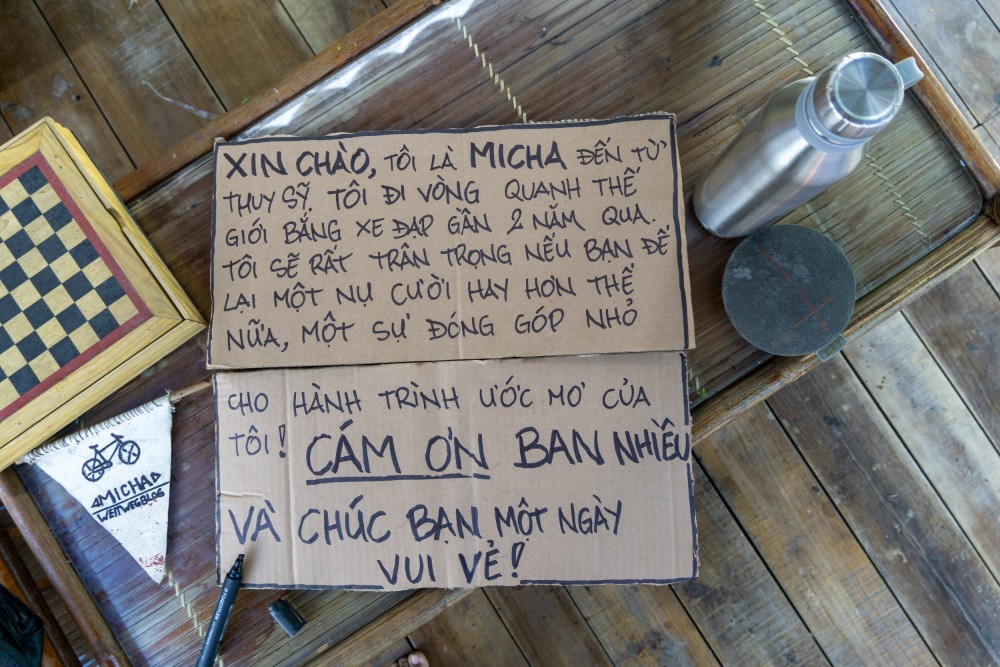 XIN CHÀO, TÔI LÀ MICHA ĐẾN TỪ
THỤY SỸ. TÔI ĐI VÒNG QUANH THẾ
GIỚI BẰNG XE ĐẠP GẦN 2 NĂM QUA.
TÔI SẼ RẤT TRÂN TRỌNG NẾU BẠN ĐỂ
LẠI MỘT NỤ CƯỜI HAY HƠN THẾ
NỮA, MỘT SỰ ĐÓNG GÓP NHỎ
CHO HÀNH TRÌNH ƯỚC MƠ CỦA
TÔI! CÁM ƠN BẠN NHIỀU
VÀ CHÚC BẠN MỘT NGÀY
VUI VẺ!
MICHA
WEITWEGBLOG